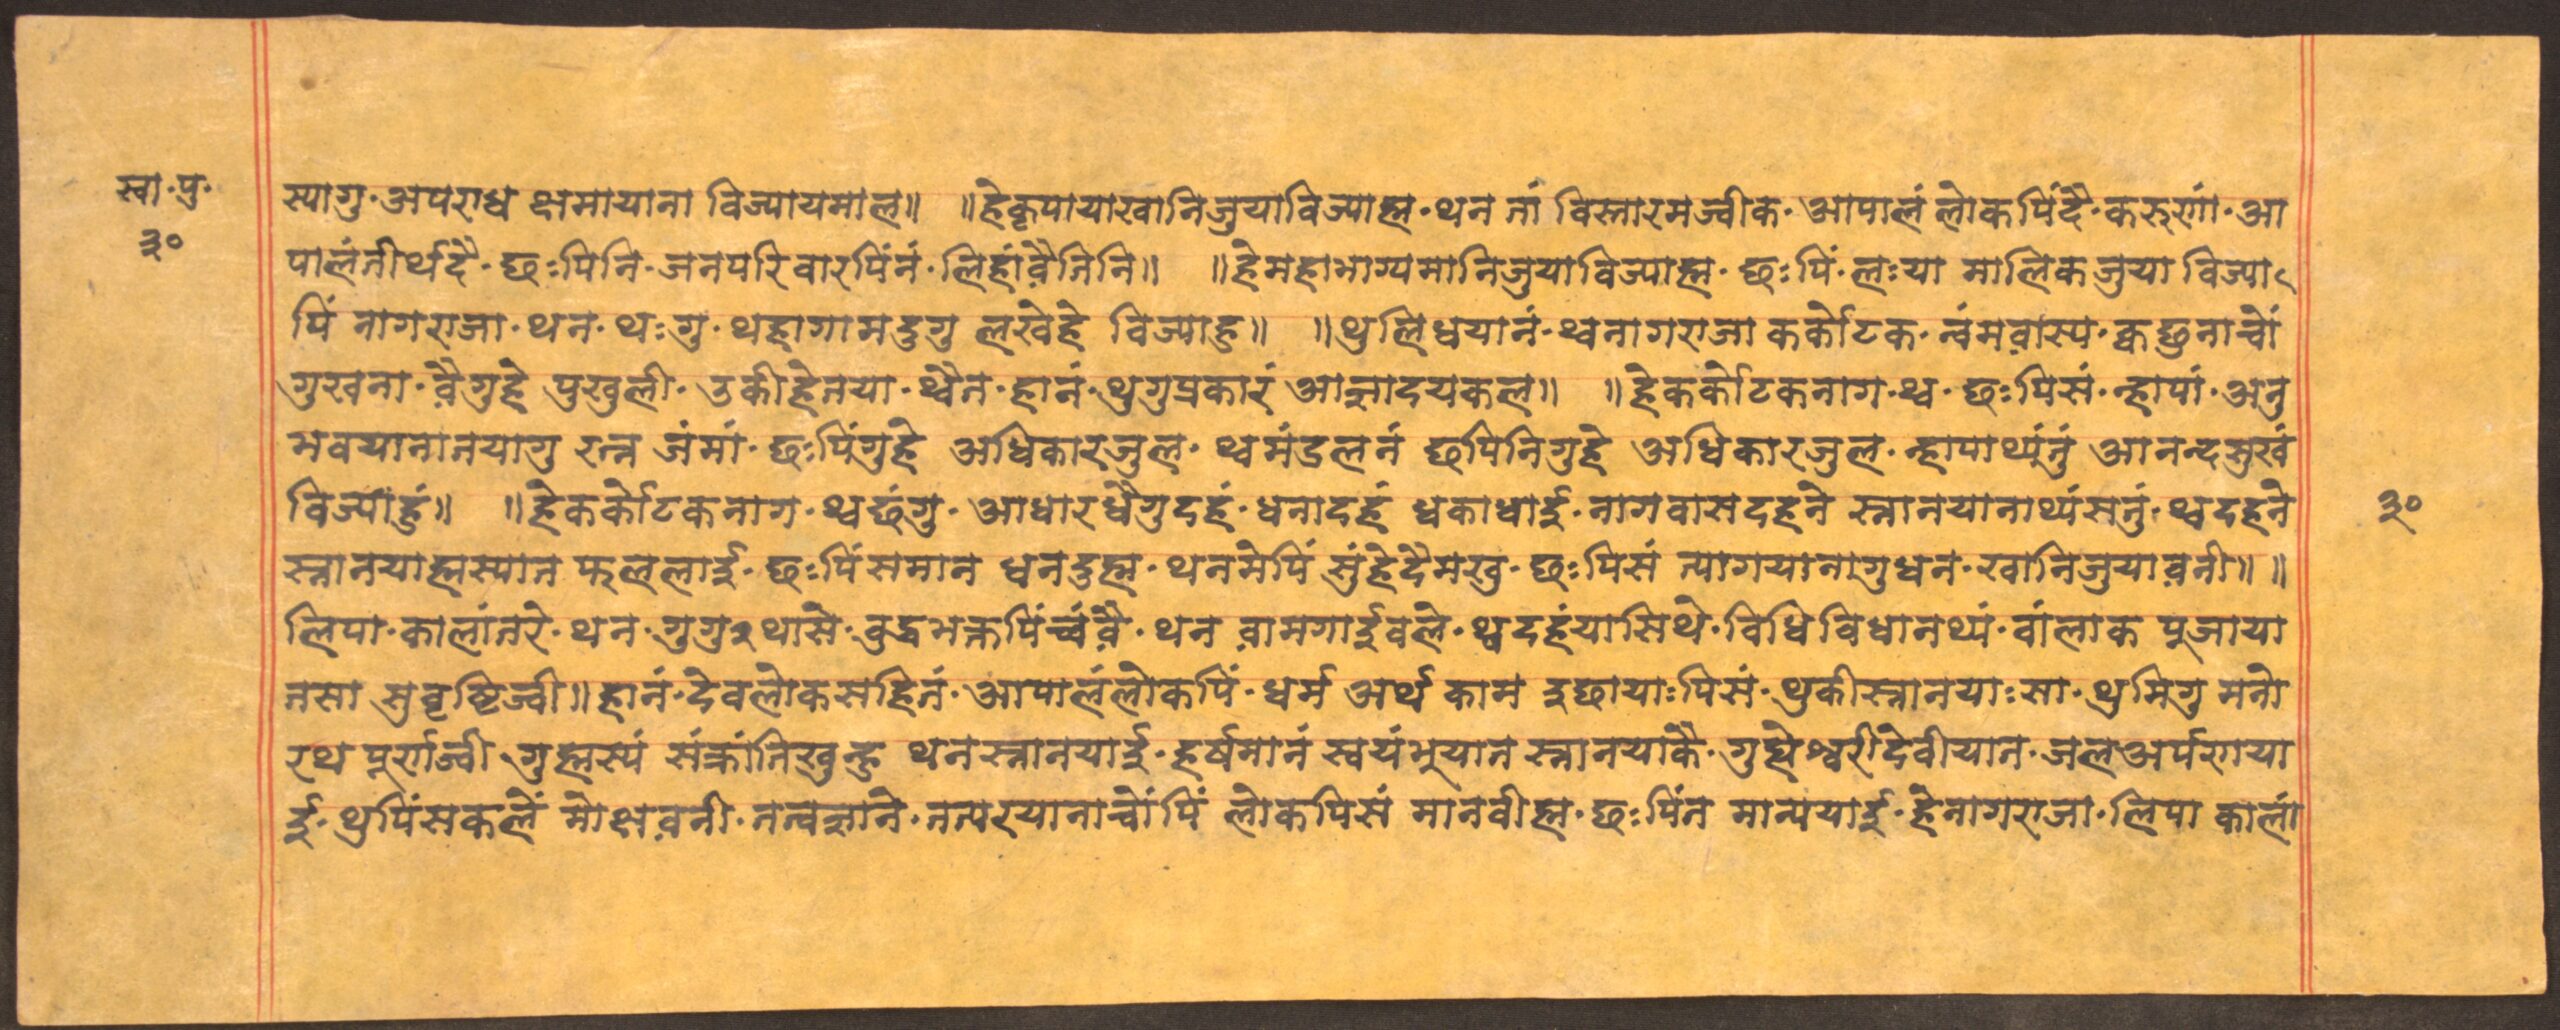 स्वा·पु·
३०
स्यागु·अपराध क्षमायाना विज्यायमाल॥ ॥हेकृपायाखानिजुयाविज्याह्म·थन नां विस्तारमज्वीक·आपालं लोकपिंदै·करुणां·आ
पालंतीर्थदै·छःपिनि·जनपरिवारपिंनं·लिहांव़ैतिनि॥ ॥हेमहाभाग्यमानिजुयाविज्याह्म·छःपिं·लःया मालिकजुया विज्या
पिं नागराजा·थन·थःगु·थहागामदुगु लखेहे विज्याहु॥ ॥थुलिधयानं·थ्वनागराजा कर्कोटक·नंमव़ास्य·क्वछुनाचों
गुखना·व़ैगुहे पुखुली·उकीहेतया·थ्वैत·हानं·थुगुप्रकारं आज्ञादयकल॥ ॥हेकर्कोटकनाग·थ्व·छःपिसं·न्हापां·अनु
भवयानातयागु रत्न जंमां·छःपिंगुहे अधिकारजुल·थ्वमंडलनं छपिनिगुहे अधिकारजुल·न्हापाथ्यंनुं आनन्दसुखं
विज्यांहुं॥ ॥हेकर्कोटकनाग·थ्वछंगु·आधारधैगुदहं·धनादहं धकाधाई·नागवासदहने स्नानयानाथ्यंसनुं·थ्वदहने
स्नानयाह्मस्यात फललाई·छःपिंसमान धनदुह्म·थनमेपिं सुंहेदैमखु·छःपिसं त्यागयानागुधन·खानिजुयाव़नी॥ ॥
लिपा·कालांतरे·थन·गुगु२थासे·बुद्धभक्तपिंच्वंव़ै·थन व़ामगाईवले·थ्वदहंयासिथे·विधिविधानथ्यं·वांलाक पूजाया
तसा सुवृष्टिज्वी॥हानं·देवलोकसहितं·आपालंलोकपिं·धर्म अर्थ काम इछायाःपिसं·थुकीस्नानयाःसा·थुमिगु मनो
रथ पूर्णज्वी गुह्मस्यं संक्रांतिखुन्हु थनस्नानयाई·हर्षमानं स्वयंभूयात स्नानयाकै·गुह्येश्वरीदेवीयात·जलअर्पणया
ई·थुपिंसकलें मोक्षव़नी·तत्वज्ञाने·तत्परयानाचोंपिं लोकपिसं मानवीह्म·छःपिंत मान्ययाई·हेनागराजा·लिपा कालां
३०